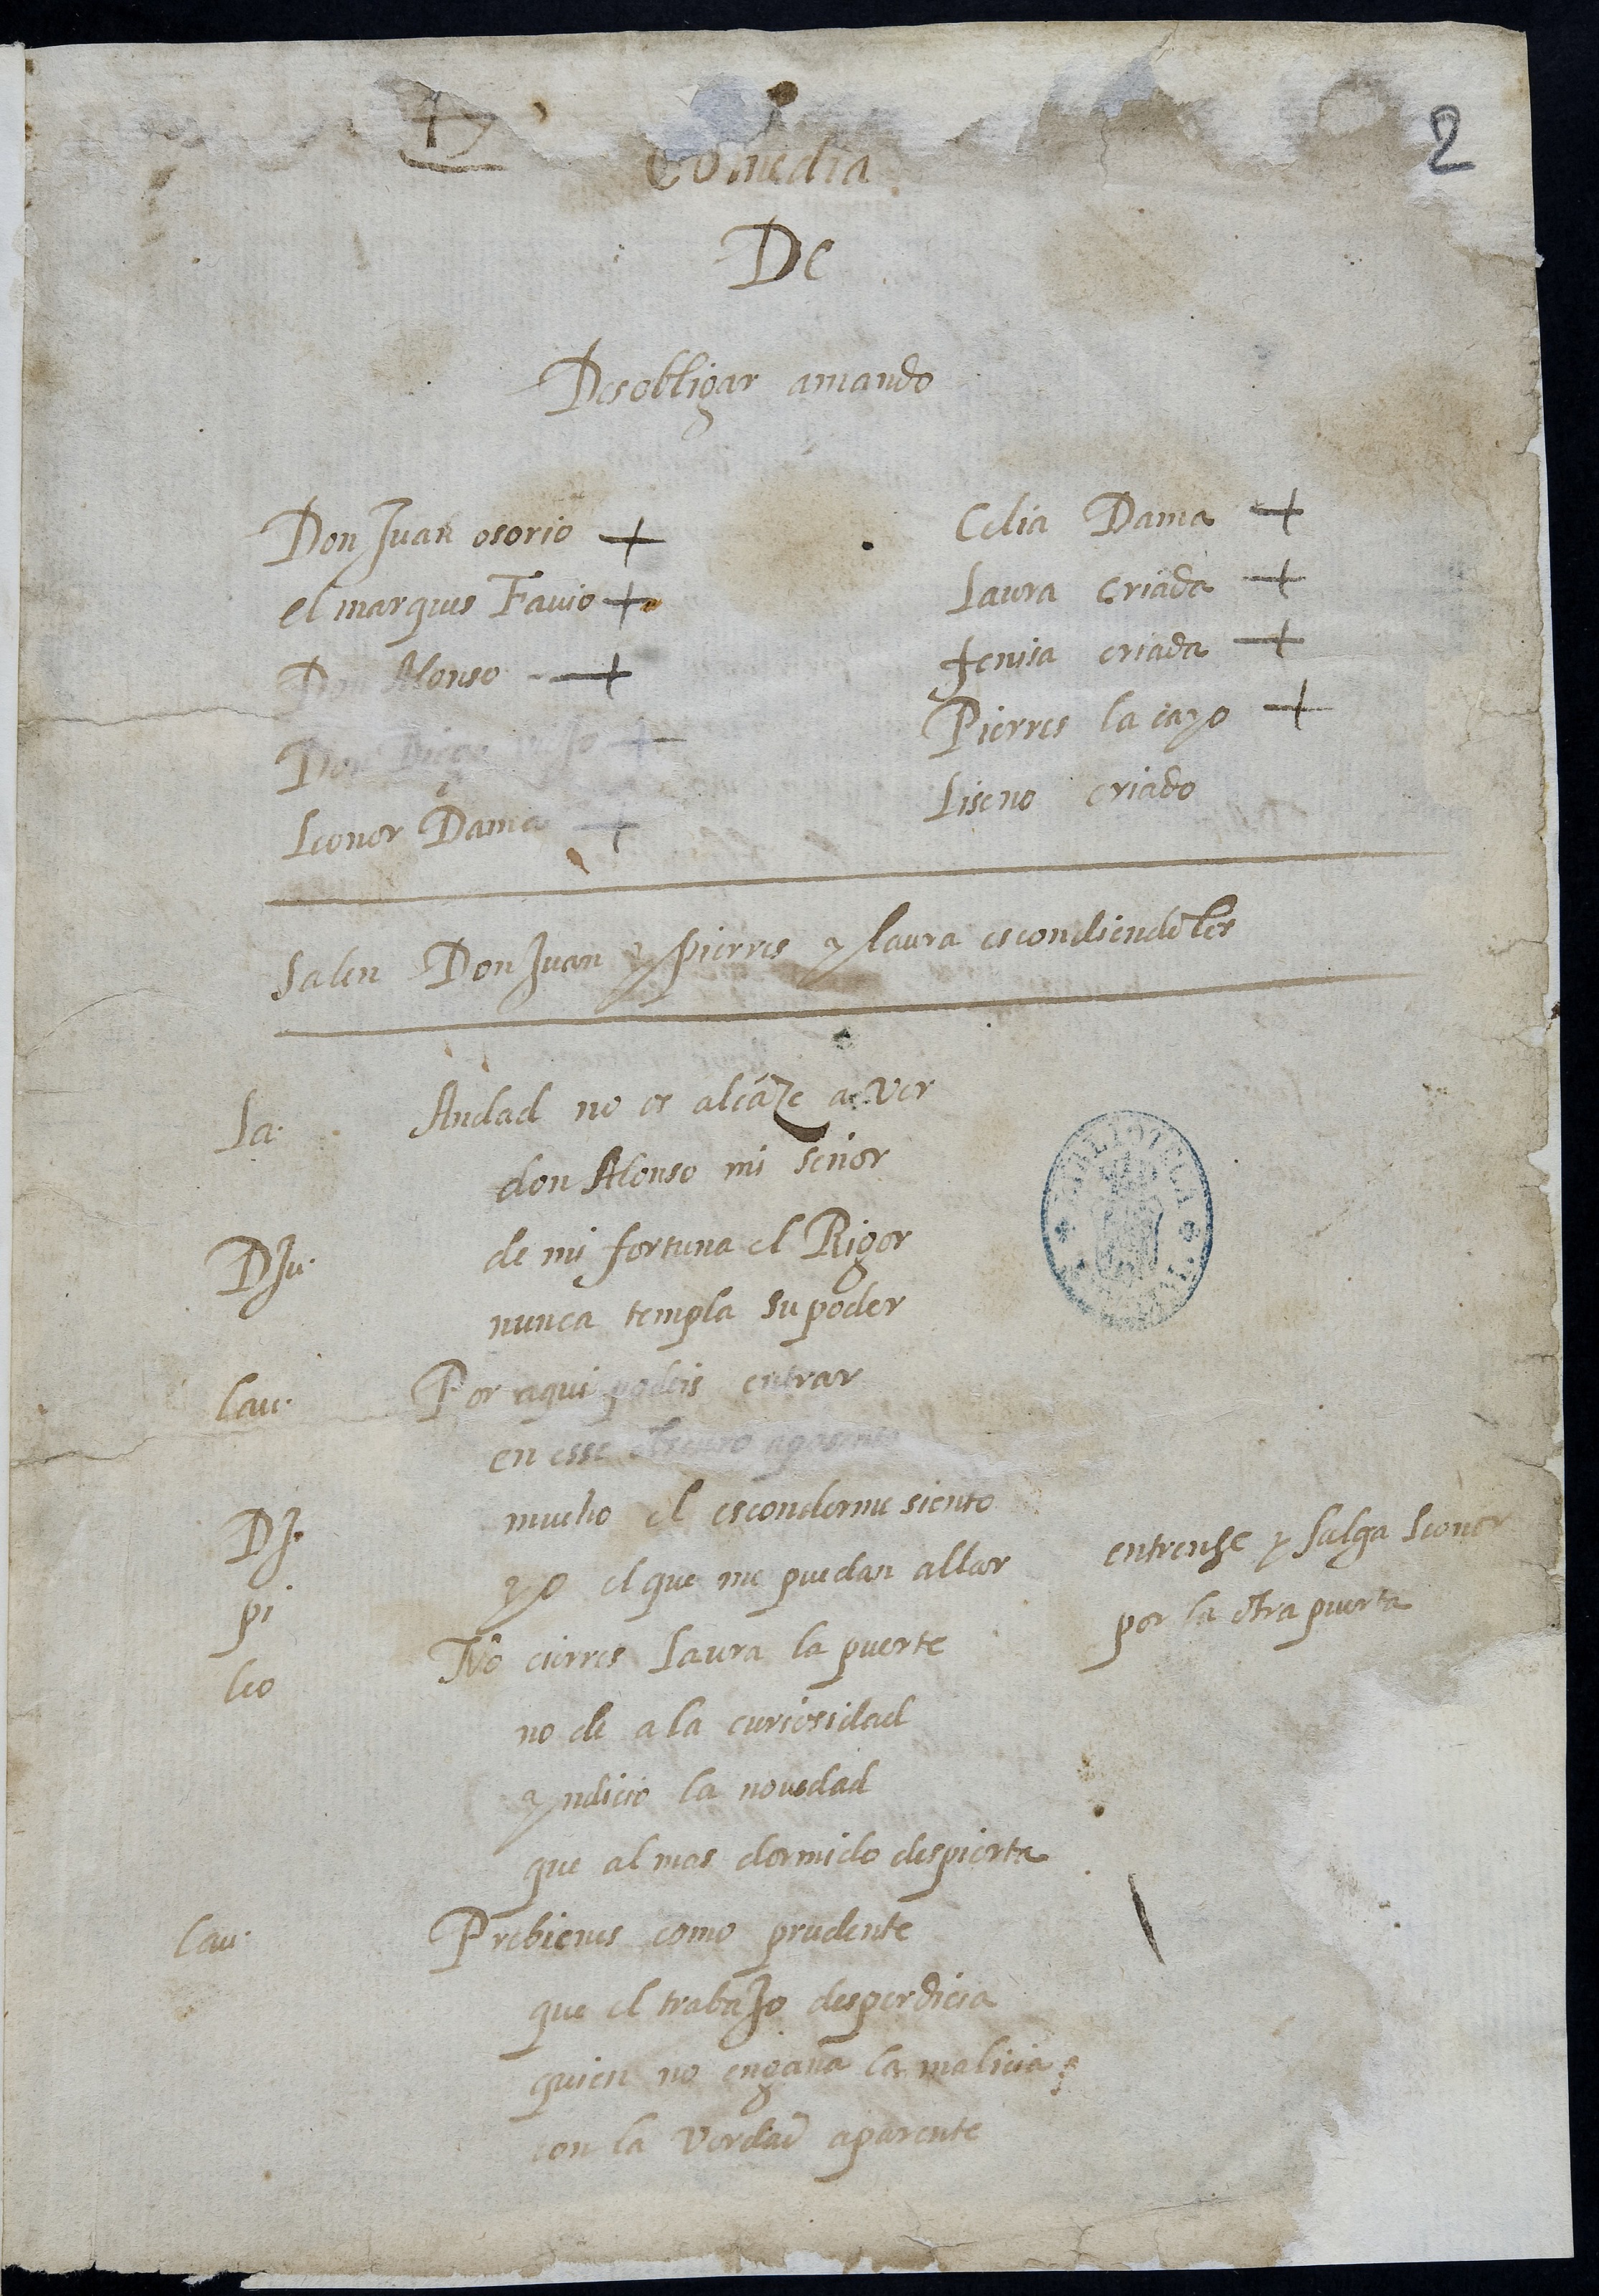 2
Comedia
De
Desobligar amando
Don Juan osorio +
el marques Fauio +
Don Alonso +
Don Diego viejo +
Leonor Dama +
Celia Dama +
Laura criada +
fenisa criada +
Pierres lacayo +
Liseno criado
Salen Don Juan y pierres y laura escondiendolos
La. Andad no os alcāze a ver
don Alonso mi señor
DJu. de mi fortuna el Rigor
nunca templa su poder
lau. Por aqui podeis entrar
en esse obscuro aposento
DJ. mucho el esconderme siento
pi yo el que me puedan allar
entrense y salga Leonor
por la otra puerta
leo No cierres Laura la puerta
no de a la curiosidad
yndicio la novedad
que al mas dormido despierta
lau. Prebienes como prudente
que el trabaJo desperdicia
quien no engaña la malicia
con la verdad aparente
BIBLIOTECA